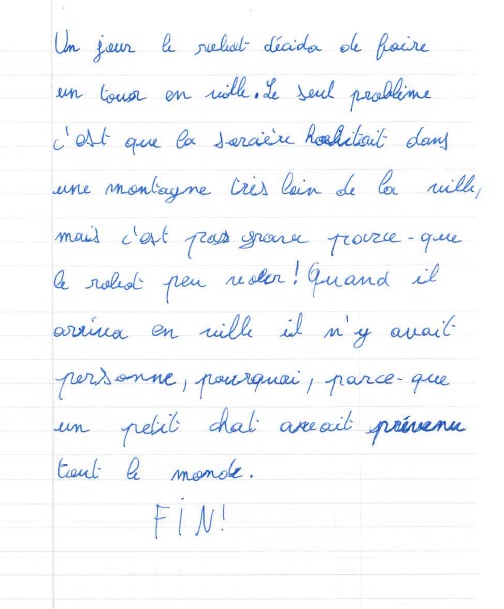 Un jour le robot décida de faire
un tour en ville. Le seul problème
c'est que la sorcière habitait dans
une montagne très loin de la ville,
mais c'est pas grave parce-que
le robot peu voler ! Quand il
arriva en ville il n'y avait
personne, pourquoi, parce-que
un petit chat avait prévenu
tout le monde.
FIN!